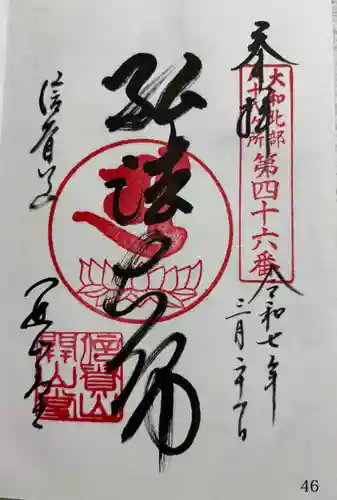 奉拝
大和北部
八十八ヶ所
第四十六番
令和七年
三月二十一日
弘法大師
信貴山
開山堂
信貴山
開山堂
46